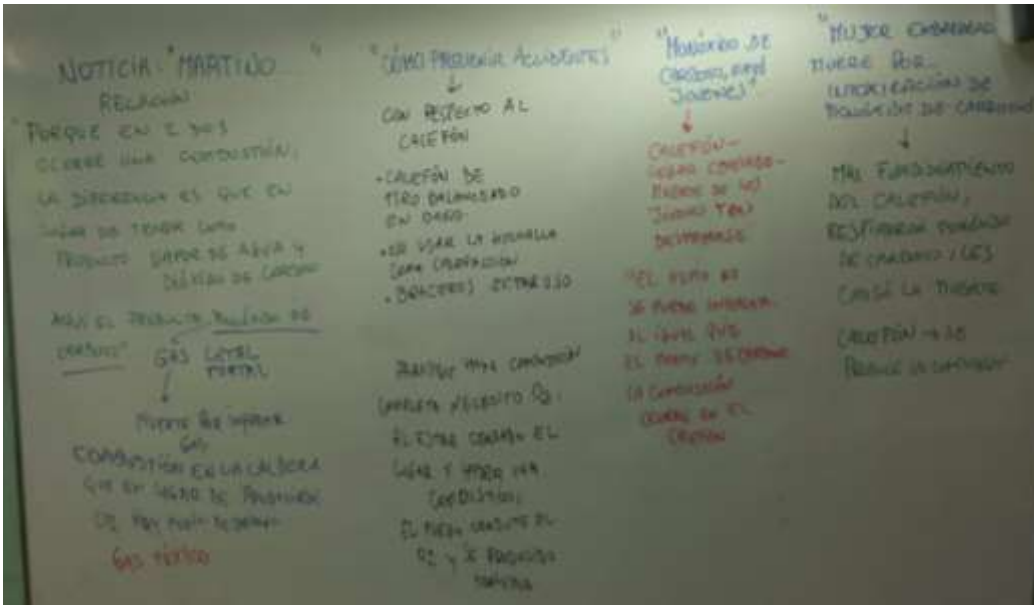 NOTICIA: "MARTINO "
RELACIÓN
"PORQUE EN 2 DOS
OCURRE UNA COMBUSTIÓN,
LA DIFERENCIA ES QUE EN
LUGAR DE TENER COMO
PRODUCTO VAPOR DE AGUA Y
DIÓXIDO DE CARBONO
AQUÍ EL PRODUCTO MONÓXIDO DE
CARBONO"
GAS LETAL
MORTAL
MUERTE POR
GAS
COMBUSTIÓN EN LA CALDERA
QUE EN LUGAR DE PRODUCIR
GAS TÓXICO
"CÓMO PREVENIR ACCIDENTES"
CON RESPECTO AL
CALEFÓN
• CALEFÓN DE
TIRO BALANCEADO
EN BAÑO
• NO USAR LA HORNALLA
COMO CALEFACCIÓN
• BRACEROS
PARA QUE COMBUSTIÓN
COMPLETA NECESITO O2,
AL ESTAR CERRADO EL
LUGAR Y HABER UNA
COMBUSTIÓN,
EL FUEGO CONSUME EL
O2 Y SE PRODUCE
"MONÓXIDO DE
CARBONO,
JÓVENES"
CALEFÓN-
LUGAR CERRADO-
MUERTE DE LOS
JÓVENES TRAS
"EL HUMO NO
SE PUEDE
AL IGUAL QUE
EL DE CARBONO
LA COMBUSTIÓN
OCURRE EN EL
CALEFÓN
"MUJER EMBARAZADA
MUERE POR
INTOXICACIÓN DE
MONÓXIDO DE CARBONO"
MAL FUNCIONAMIENTO
DEL CALEFÓN,
RESPIRARON MONÓXIDO
DE CARBONO Y LES
CAUSÓ LA MUERTE
CALEFÓN → SE
PRODUCE LA COMBUSTIÓN